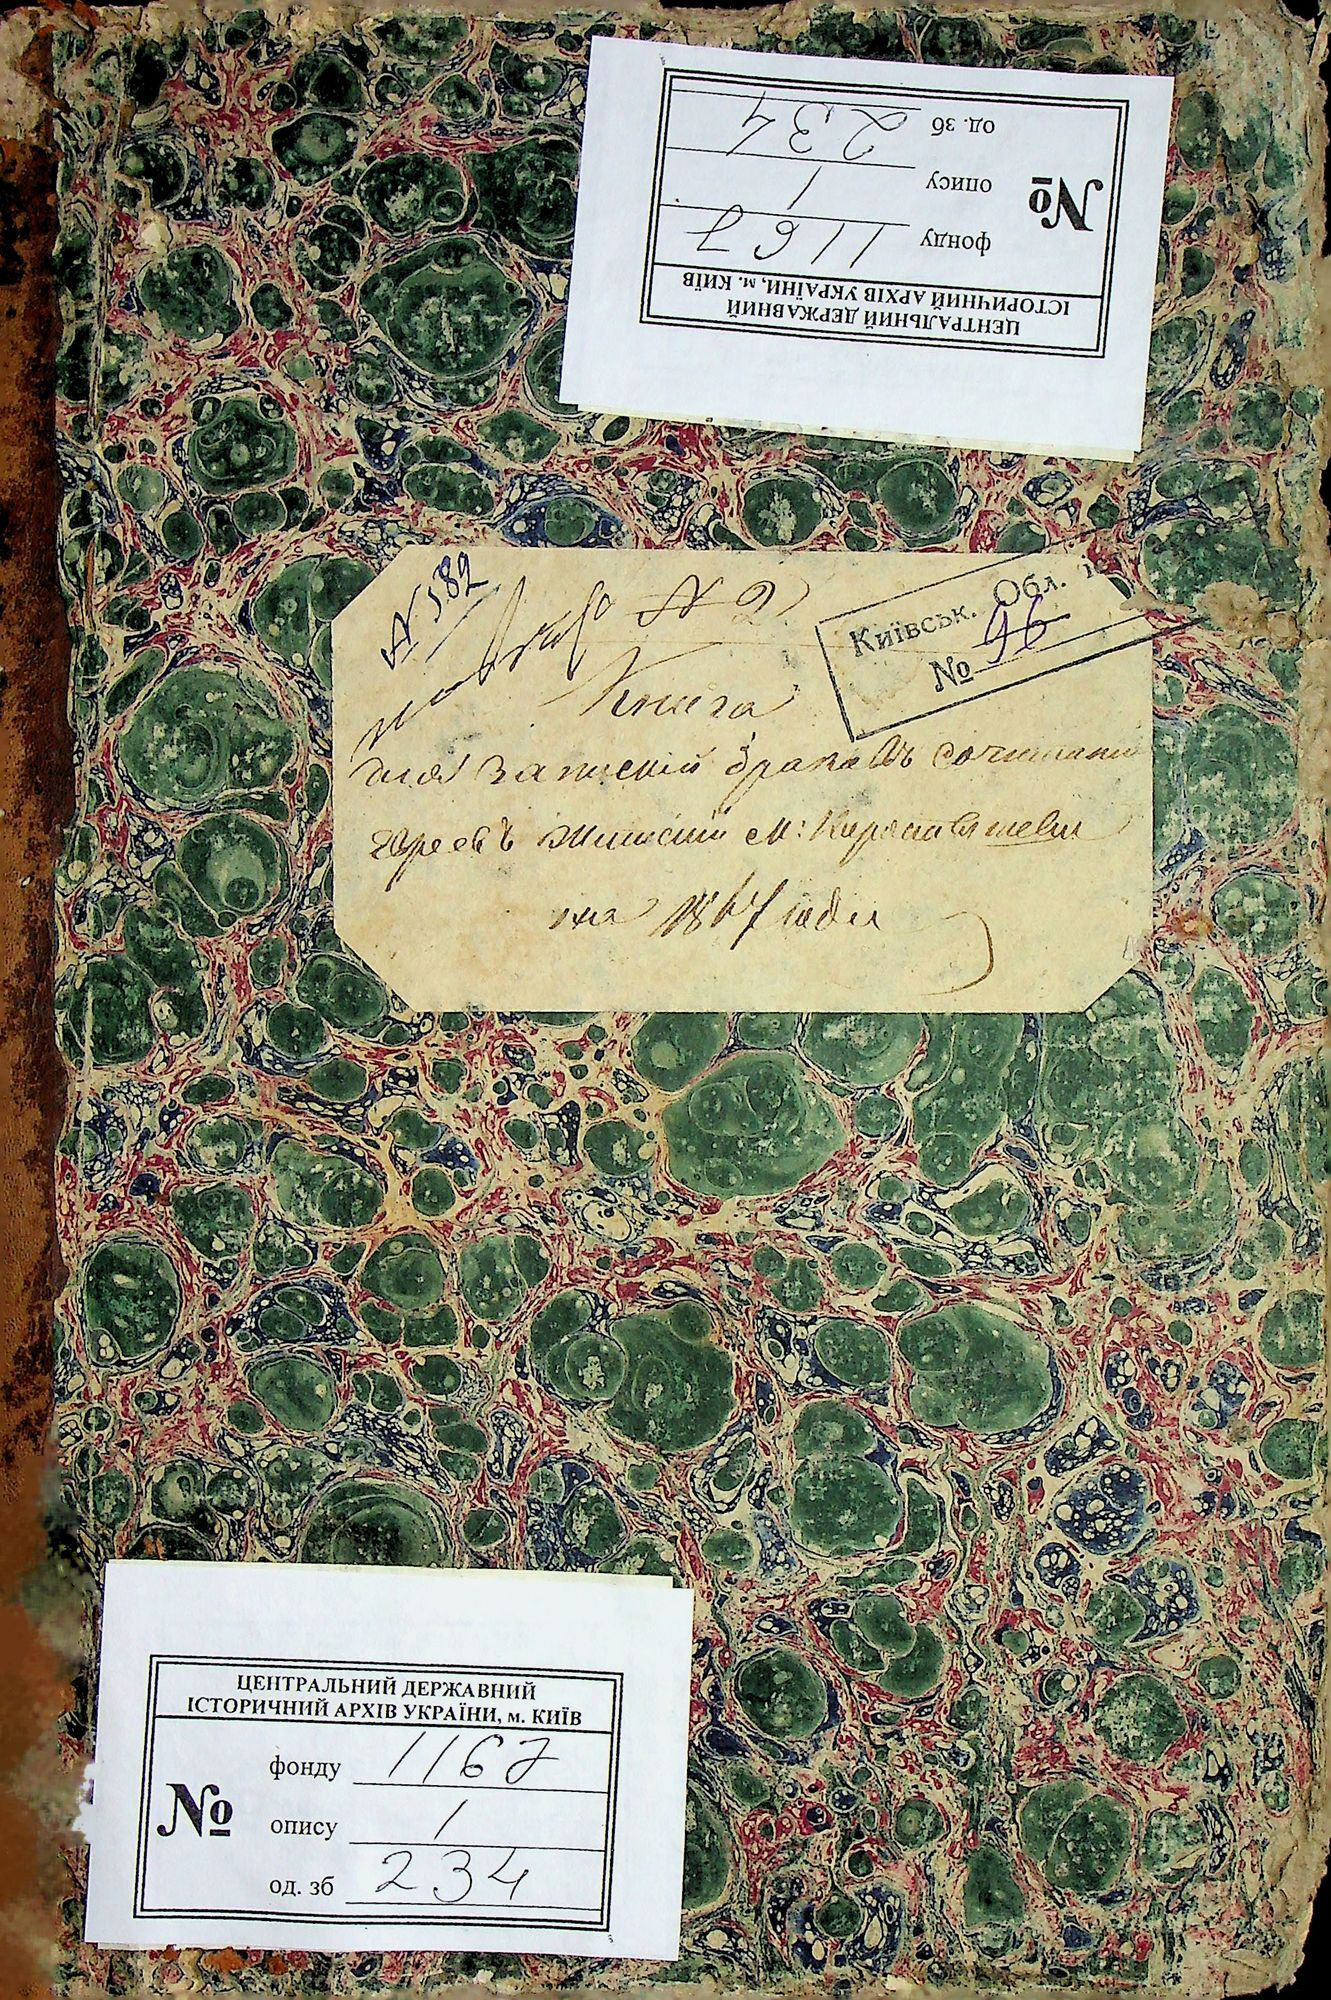 ЦЕНТРАЛЬНИЙ ДЕРЖАВНИЙ
ІСТОРИЧНИЙ АРХІВ УКРАЇНИ, м. КИЇВ
№
фонду 1167
опису 1
од. зб 234
№ 182
№ 2
Київськ. Обл.
№ 96
Книга
для записки бракомъ сочитани
евреевъ м:
на 1867 годъ
ЦЕНТРАЛЬНИЙ ДЕРЖАВНИЙ
ІСТОРИЧНИЙ АРХІВ УКРАЇНИ, м. КИЇВ
№
фонду 1167
опису 1
од. зб 234